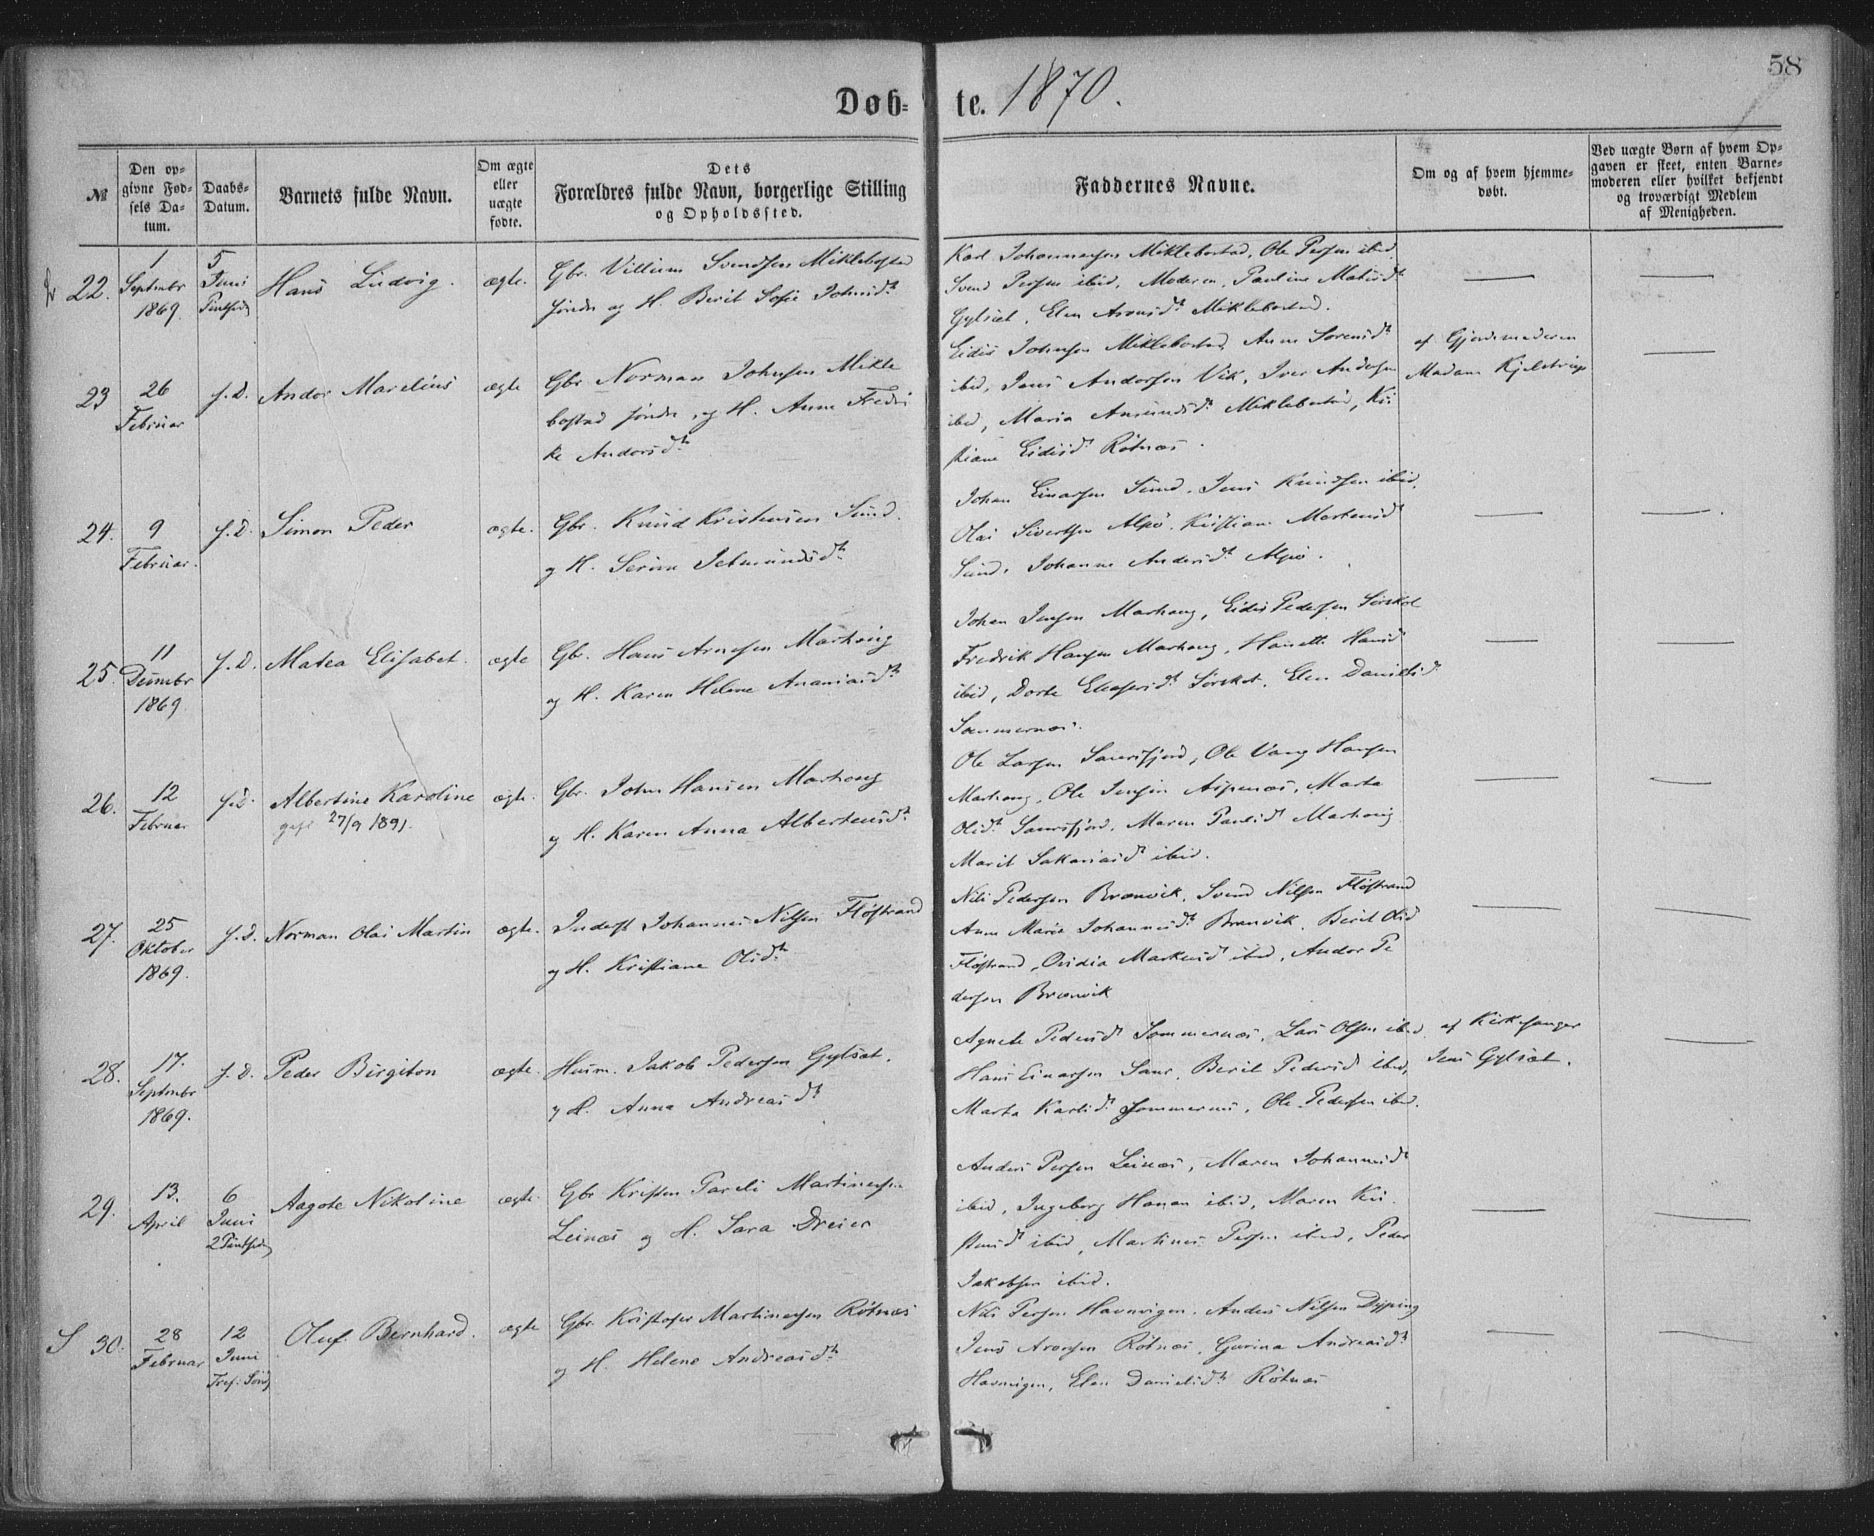 58
Døb- te. 1870.
№
Den opgivne Fødsels Datum.
Daabs-Datum.
Barnets fulde Navn.
Om ægte eller uægte fødte.
Dets Forældres fulde Navn, borgerlige Stilling og Opholdssted.
Faddernes Navne.
Om og af hvem hjemmedøbt.
Ved uægte Børn af hvem Opgaven er skeet, enten Barnemoderen eller hvilket bekjendt og troværdigt Medlem af Menigheden.
22. 1 Septembr 1869. 5 Juni Pintsedg Hans Ludvig. ægte.
Gbr. Villium Svendsen Miklebostad
søndre og H. Berit Sofie Johnsdtr
Karl Johannesen Miklebostad, Ole Persen ibid.
Svend Persen ibid, Moderen, Pauline Matisdtr
Gylset, Elen Aronsdtr Miklebostad.
23 26 Februar s.D. Andor Marelius ægte
Gbr Norman Johnsen Mikle
bostad søndre, og H. Anne Fredri
ke Andorsdtr
Eidis Johnsen Miklebostad, Anne Sørensdtr
ibid, Jens Andorsen Vik, Iver Andorsen
ibid, Maria Amundsdtr Miklebostad, Kri
stiane Eidisd Røtnæs.
af Gjordemoderen
Madam Kjelstrup
24. 9 Februar. s.D. Simon Peder ægte.
Gbr. Knud Kristensen Sund.
og H. Serina Jetmundsdtr
Johan Einarsen Sund, Jens Knudsen ibid,
Olai Sivertsen Alpø, Kristiane Martensdtr
Sund, Johanne Andersdtr Alpø.
25. 11 Decembr 1869 s.D. Matea Elisabet. ægte
Gbr. Hans Arnesen Marhaug
og H. Karen Helene Ananiasdtr
Johan Jensen Marhaug, Eidis Pedersen Sørskot
Fredrik Hansen Marhaug, Hanette Hansd
ibid, Dorte Eleasersdtr Sørskot, Elen Danielsd
Sommernæs.
26. 12 Februar s.D. Albertine Karoline ægte.
27/9 1891.
Gbr. John Hansen Marhaug
og H. Karen Anna Albertsdtr
Ole Larsen Saursfjord, Ole Vang Hansen
Marhaug, Ole Jensen Aspenæs, Marta
Olsdtr Saursfjord, Maren Paulsdtr Marhaug
Marit Sakariasdtr ibid.
27. 25 Oktober 1869. s.D. Norman Olai Martin ægte.
Inderst Johannes Nilsen Fløstrand
og H. Kristiane Olsdtr
Nils Pedersen Brænvik, Svend Nilsen Fløstrand
Anne Maria Johannesdtr Brænvik, Berit Olsd
Fløstrand, Ovidia Markusd ibid, Andor Pe
dersen Brænvik
28. 17. Septembr 1869. s.D. Peder Birgiton ægte.
Husm. Jakob Pedersen Gylset.
og H. Anna Andreasdtr
Agnete Pedersdtr Sommernæs, Lars Olsen ibid,
Hans Einarsen Saur, Berit Pedersd ibid,
Marta Karlsdtr Sommernæs, Ole Pedersen ibid.
af Kirkesanger
Jens Gylset.
29. 13. April 6 Juni 2 Pintsedg Aagote Nikoline ægte.
Gbr Kristen Pareli Martinesen
Leinæs og H. Sara Dreier
Anders Persen Leinæs, Maren Johannesdtr
ibid, Ingeborg Hanan ibid, Maren Kri
stensdtr ibid, Martines Persen ibid, Peder
Jakobsen ibid.
S 30. 28 Februar 12 Juni Tref. Sønd Oluf Bernhard. ægte
Gbr Kristofer Martinesen Røtnæs
og H. Helene Andreasdtr
Nils Persen Havnvigen, Anders Nilsen Dyping
Jens Aronsen Røtnæs, Gurina Andreasdtr
Havnvigen, Elen Danielsdtr Røtnæs